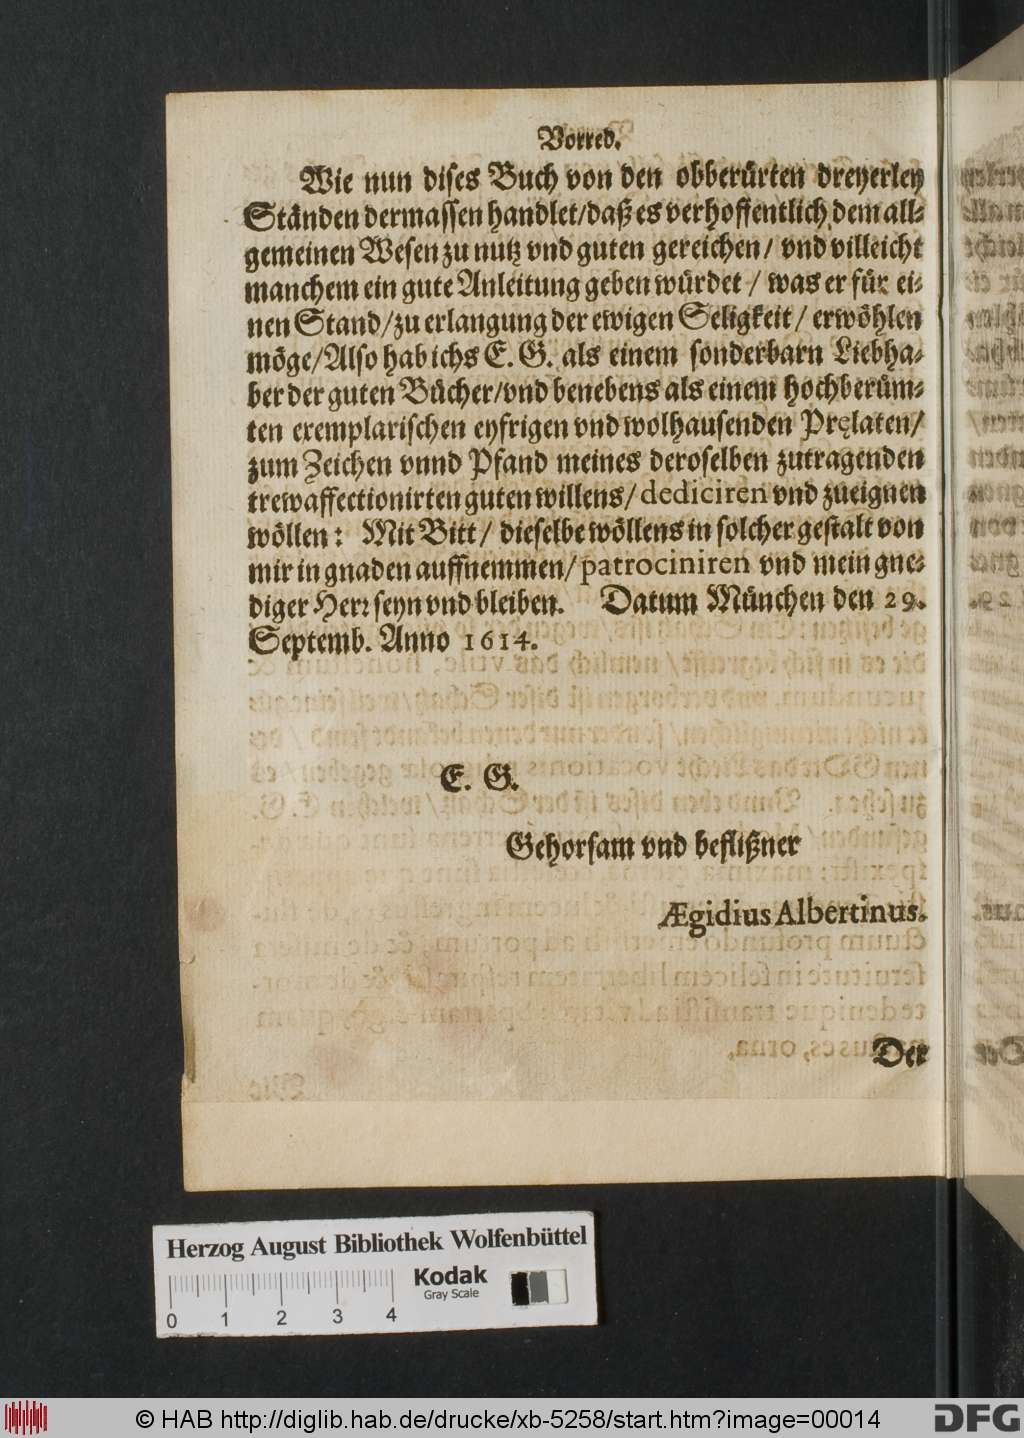 Vorred.
Wie nun dises Buch von den obberürten dreyerley
Ständen dermassen handlet/daß es verhoffentlich dem all-
gemeinen Wesen zu nutz vnd guten gereichen/ vnd villeicht
manchem ein gute Anleitung geben würdet / was er für ei-
nen Stand/zu erlangung der ewigen Seligkeit/ erwöhlen
möge/Also hab ichs E. G. als einem sonderbarn Liebha-
ber der guten Bücher/vnd benebens als einem hochberüm-
ten exemplarischen eyfrigen vnd wolhausenden Pręlaten/
zum Zeichen vnnd Pfand meines deroselben zutragenden
trewaffectionirten guten willens/ dediciren vnd zueignen
wöllen: Mit Bitt/ dieselbe wöllens in solcher gestalt von
mir in gnaden auffnemmen/ patrociniren vnd mein gne-
diger Herr seyn vnd bleiben. Datum München den 29.
Septemb. Anno 1614.
E. G.
Gehorsam vnd beflißner
Ægidius Albertinus.
Der
Herzog August Bibliothek Wolfenbüttel
Kodak
Gray Scale
0 1 2 3 4
© HAB http://diglib.hab.de/drucke/xb-5258/start.htm?image=00014
DFG